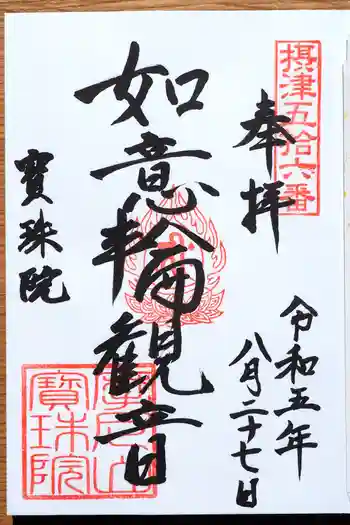 摂津五拾六番
奉拝
令和五年
八月二十七日
如意輪観音
寳珠院
寳珠院